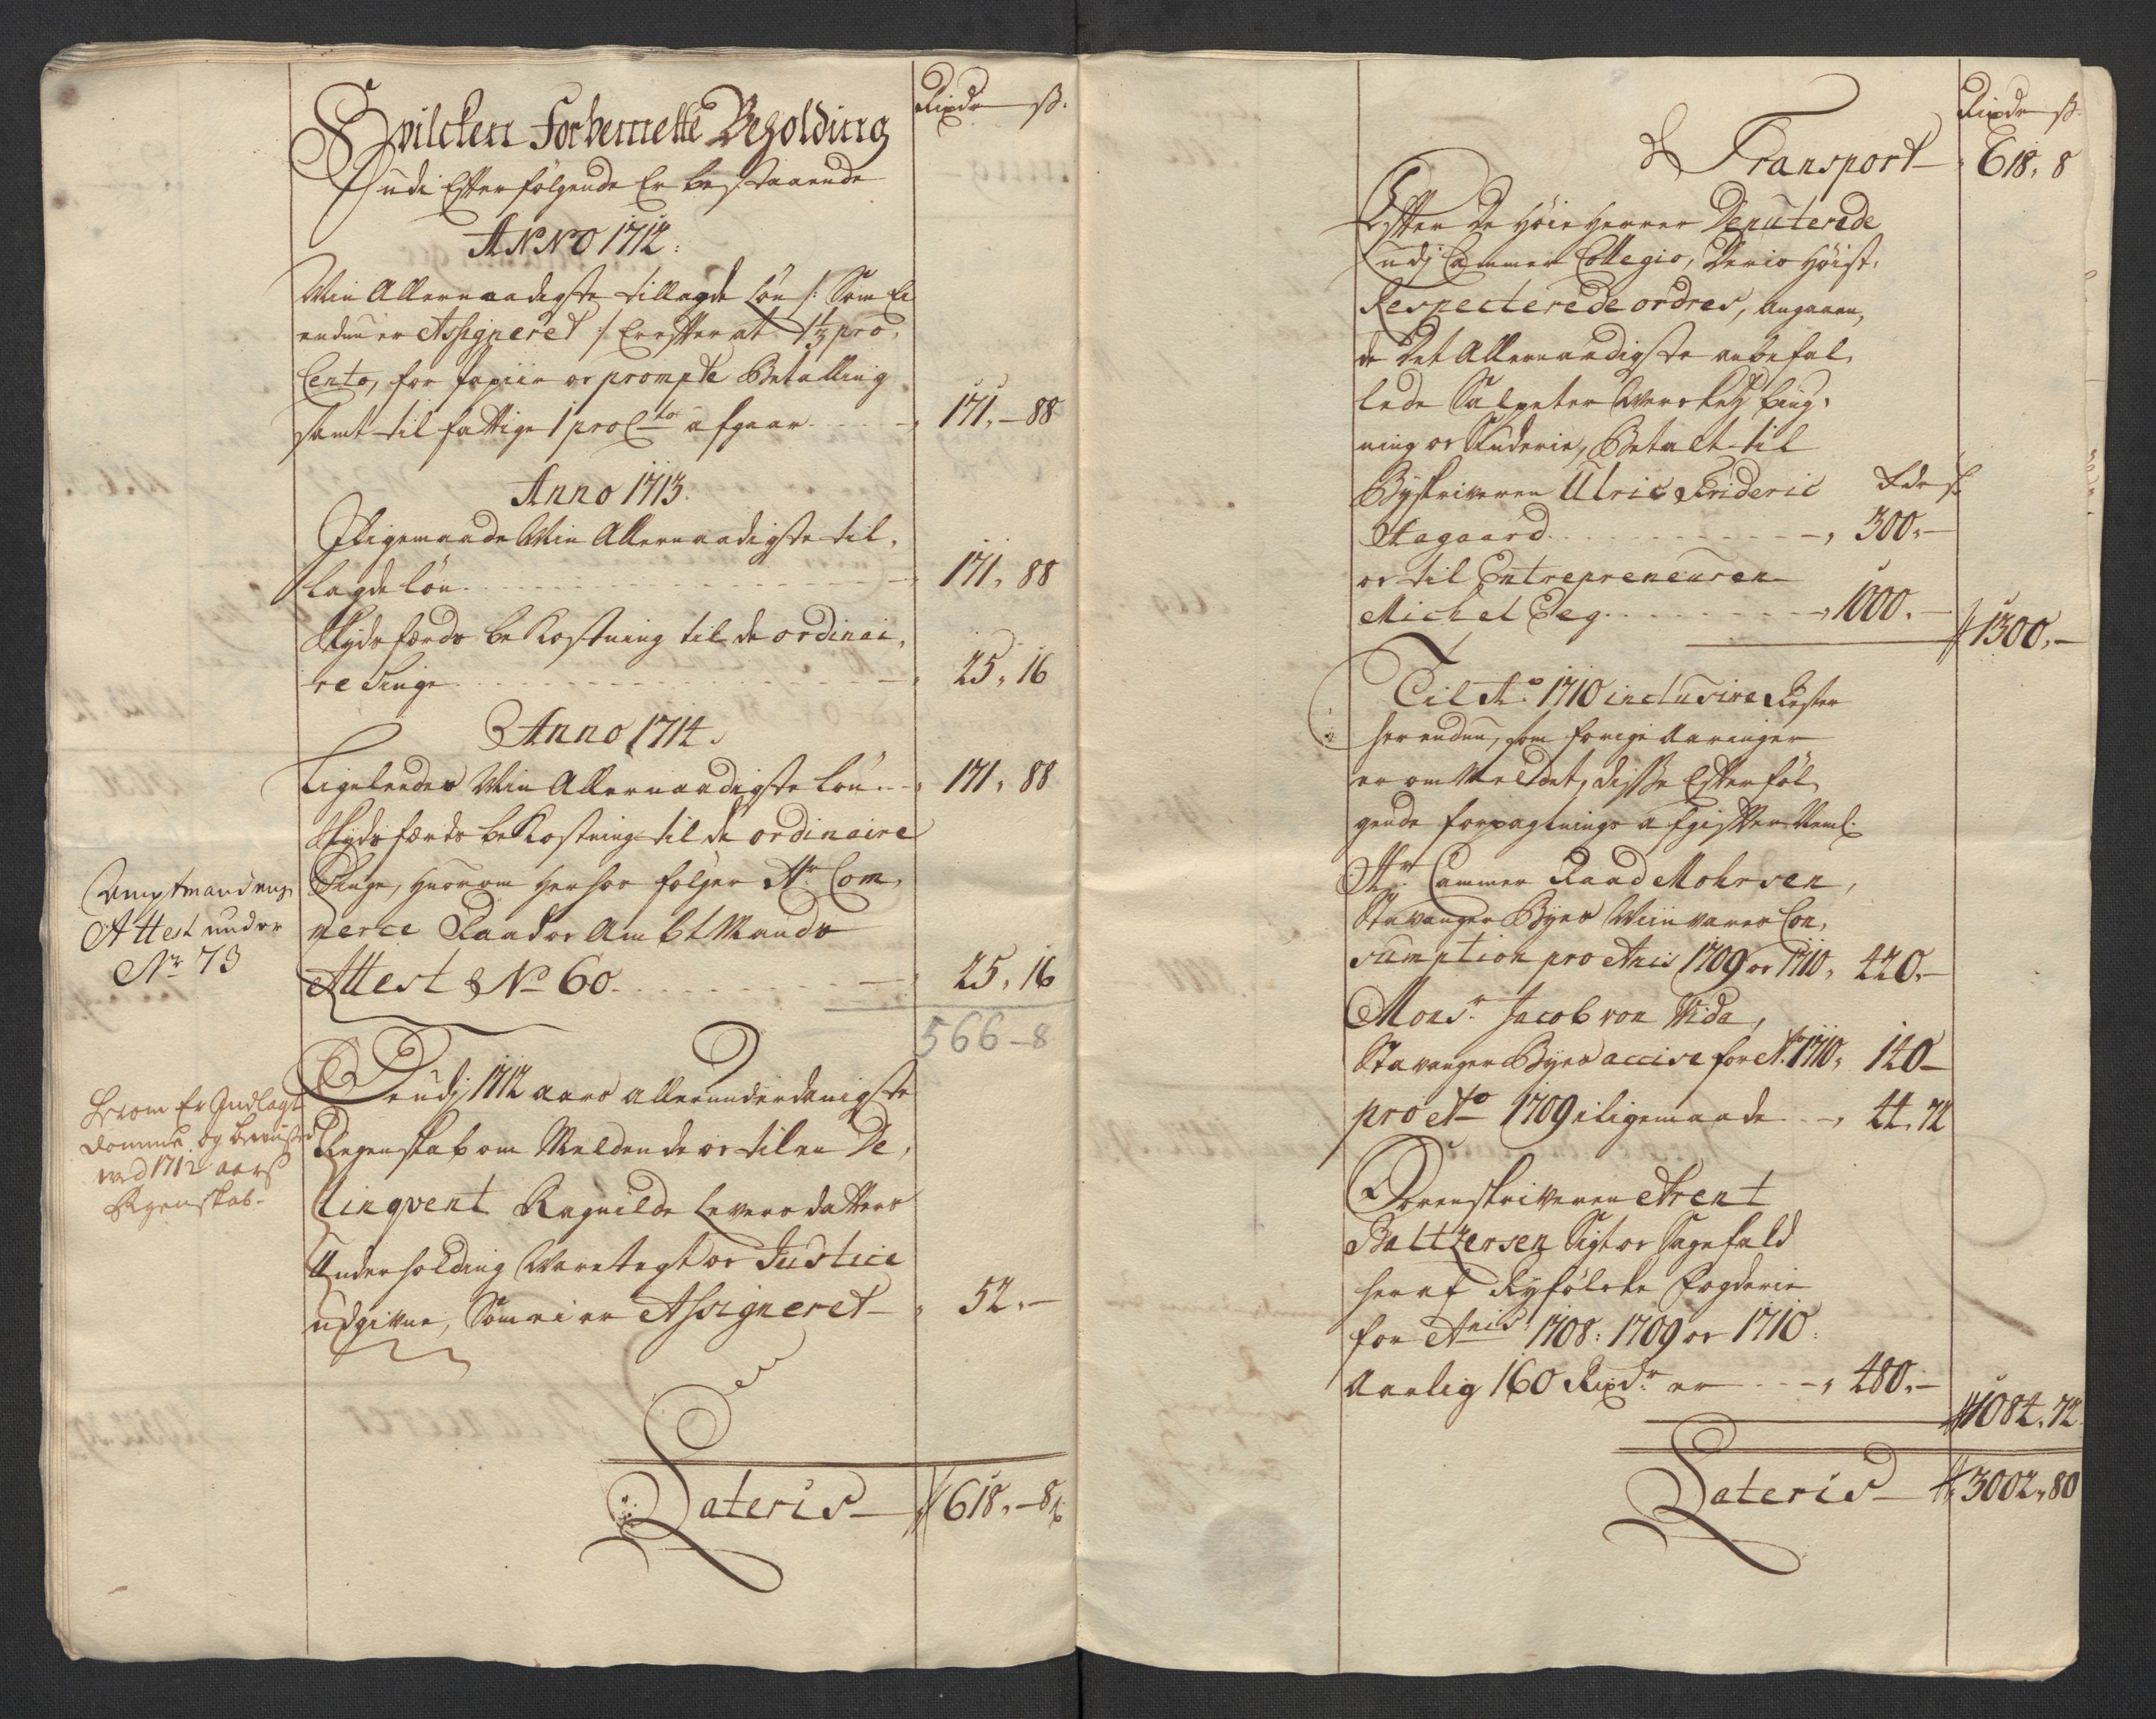 Rixdr ß.
Hvilcken Forbemelte Beholding
Udi Efterfølgende Er bestaaende
ANNO 1712:
Min Allernaadigste tillagde Løn /: Som Ei
endnu er Assigneret :/ Erefter at 1½ pro
Cento, for papiir og prompte Betalling
samt til fattige 1 pro Cto afgaar - 171. - 88
Anno 1713.
Jligemaade Min Allernaadigste til,
lagde løn - 171. 88
Skydsferds bekostning til de ordinai,
re tinge - 25. 16
Anno 1714.
Ligeleedes Min Allernaadigste løn - 171. 88
Skydsferds bekostning til de ordinaire
Tinge, huorom herhos følger Hr Com,
merce Raad og AmbtMands
Attest No 60 - 25. 16
Amptmandens
Attest under
Nr 73
566 - 8
Endj 1712 aars allerunderdanigste
Regenskab om Meldende og til en De,
linqvent Ragnilde Leversdatters
Underholding Varetegt og Justice
udgivne, Som ei er Assigneret - 52. -
Hrom Er Indlagt
Domme og beviiser
ved 1712 aars
Regenskab.
Lateris - 618. - 8 ß
Rixdr ß.
Transport - 618. 8
Efter De Høie Herrer Deputerede
udj Cammer Collegio, Deris Høist,
Respecterede ordres, angaaen,
de Det Allernaadigste anbefal,
lede Salpeter Verckets byg,
ning og Syderie, Betalt til
Byskriveren Ulric Frideric Rdr ß
Aagaard - 300. -
og til Entrepreneuren
Michel Leg - 1000. -
1300. -
Til Ao 1710 inclusive Rester
her endnu, som forige Aaringer
er om Meldet, disse Efterføl,
gende forpagtnings afgifter Neml:
Hr Cammer Raad Mohrsen,
Stavanger Byes Viinvares Con,
sumption pro Anis 1709 og 1710, 420. -
Monsr Jacob von Wida,
Stavanger Byes accise for Ao 1710, 140 -
pro Ao 1709 iligemaade - 44. 72
Sorenskriveren Arent
Baltzersen Sigt og Sagefald
her af Ryfølcke Fogderie
for Anis 1708: 1709 og 1710:
Aarlig 160 Rixdr er - 480. -
1084. 72
Lateris - 3002. 80